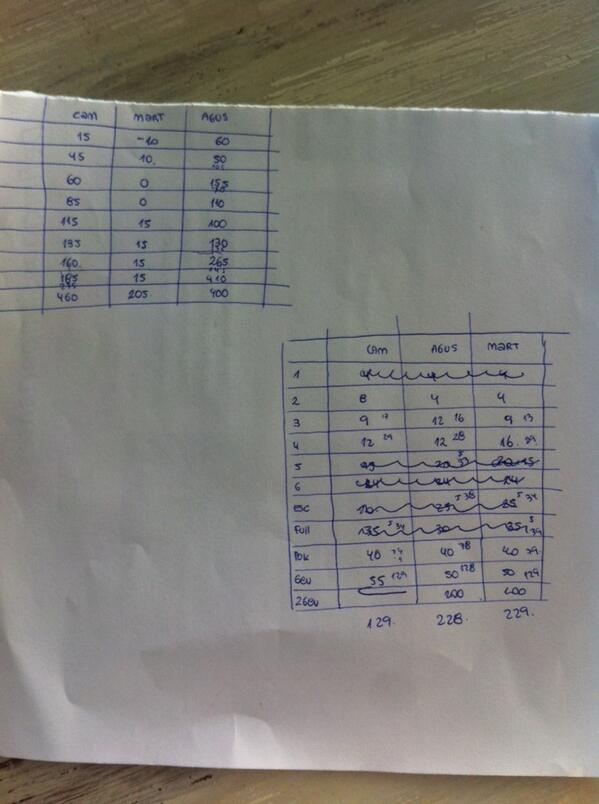 CAM MART AGUS
15 -10 60
45 10 50
60 0 155
85 0 110
115 15 100
135 15 130
160 15 265
185 15 410
460 205 400
CAM AGUS MART
1
2 8 4 4
3 9 17 12 16 9 13
4 12 29 12 28 16 29
5
6 24 24 24
ESC
Full 35 5 34 30 35 5 34
POK 40 40 78 40
GEN 55 129 50 128 50 129
2GEN 100 100
129. 228. 229.